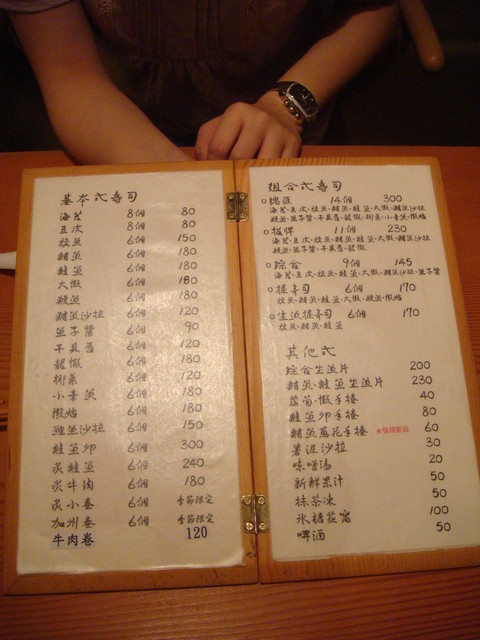 基本式壽司
海苔 8個 80
豆皮 8個 80
6個 150
鮪魚 6個 180
鮭魚 6個 180
大蝦 6個
鰻魚 6個 180
鮪魚沙拉 6個 120
魚子醬 6個 90
干貝唇 6個 120
龍蝦 6個 180
6個 120
6個 180
蝦 6個 180
沙拉 6個 150
鮭魚卵 6個 300
炙鮭魚 6個 240
炙牛肉 6個 180
炙小卷 6個 季節限定
加州卷 6個 季節限定
牛肉卷 120
組合式壽司
14個 300
海苔、豆皮、鮪魚、鮭魚、大蝦、鮪魚沙拉
鰻魚、魚子醬、干貝唇、龍蝦
11個 230
海苔、豆皮、鮪魚、鮭魚、大蝦、鮪魚沙拉
鰻魚、魚子醬、龍蝦
綜合 9個 145
海苔、豆皮、鮪魚、鮭魚、大蝦、鮪魚沙拉、魚子醬
握壽司 6個 170
鮪魚、鮭魚、大蝦、鰻魚
生魚握壽司 6個 170
鮪魚、鮭魚
其他式
綜合生魚片 200
鮪魚、鮭魚生魚片 230
蘆筍、蝦手捲 40
鮭魚卵手捲 80
鮪魚蔥花手捲 60
薯泥沙拉 30
味噌湯 20
新鮮果汁 50
抹茶凍 50
冰糖燕窩 100
啤酒 50